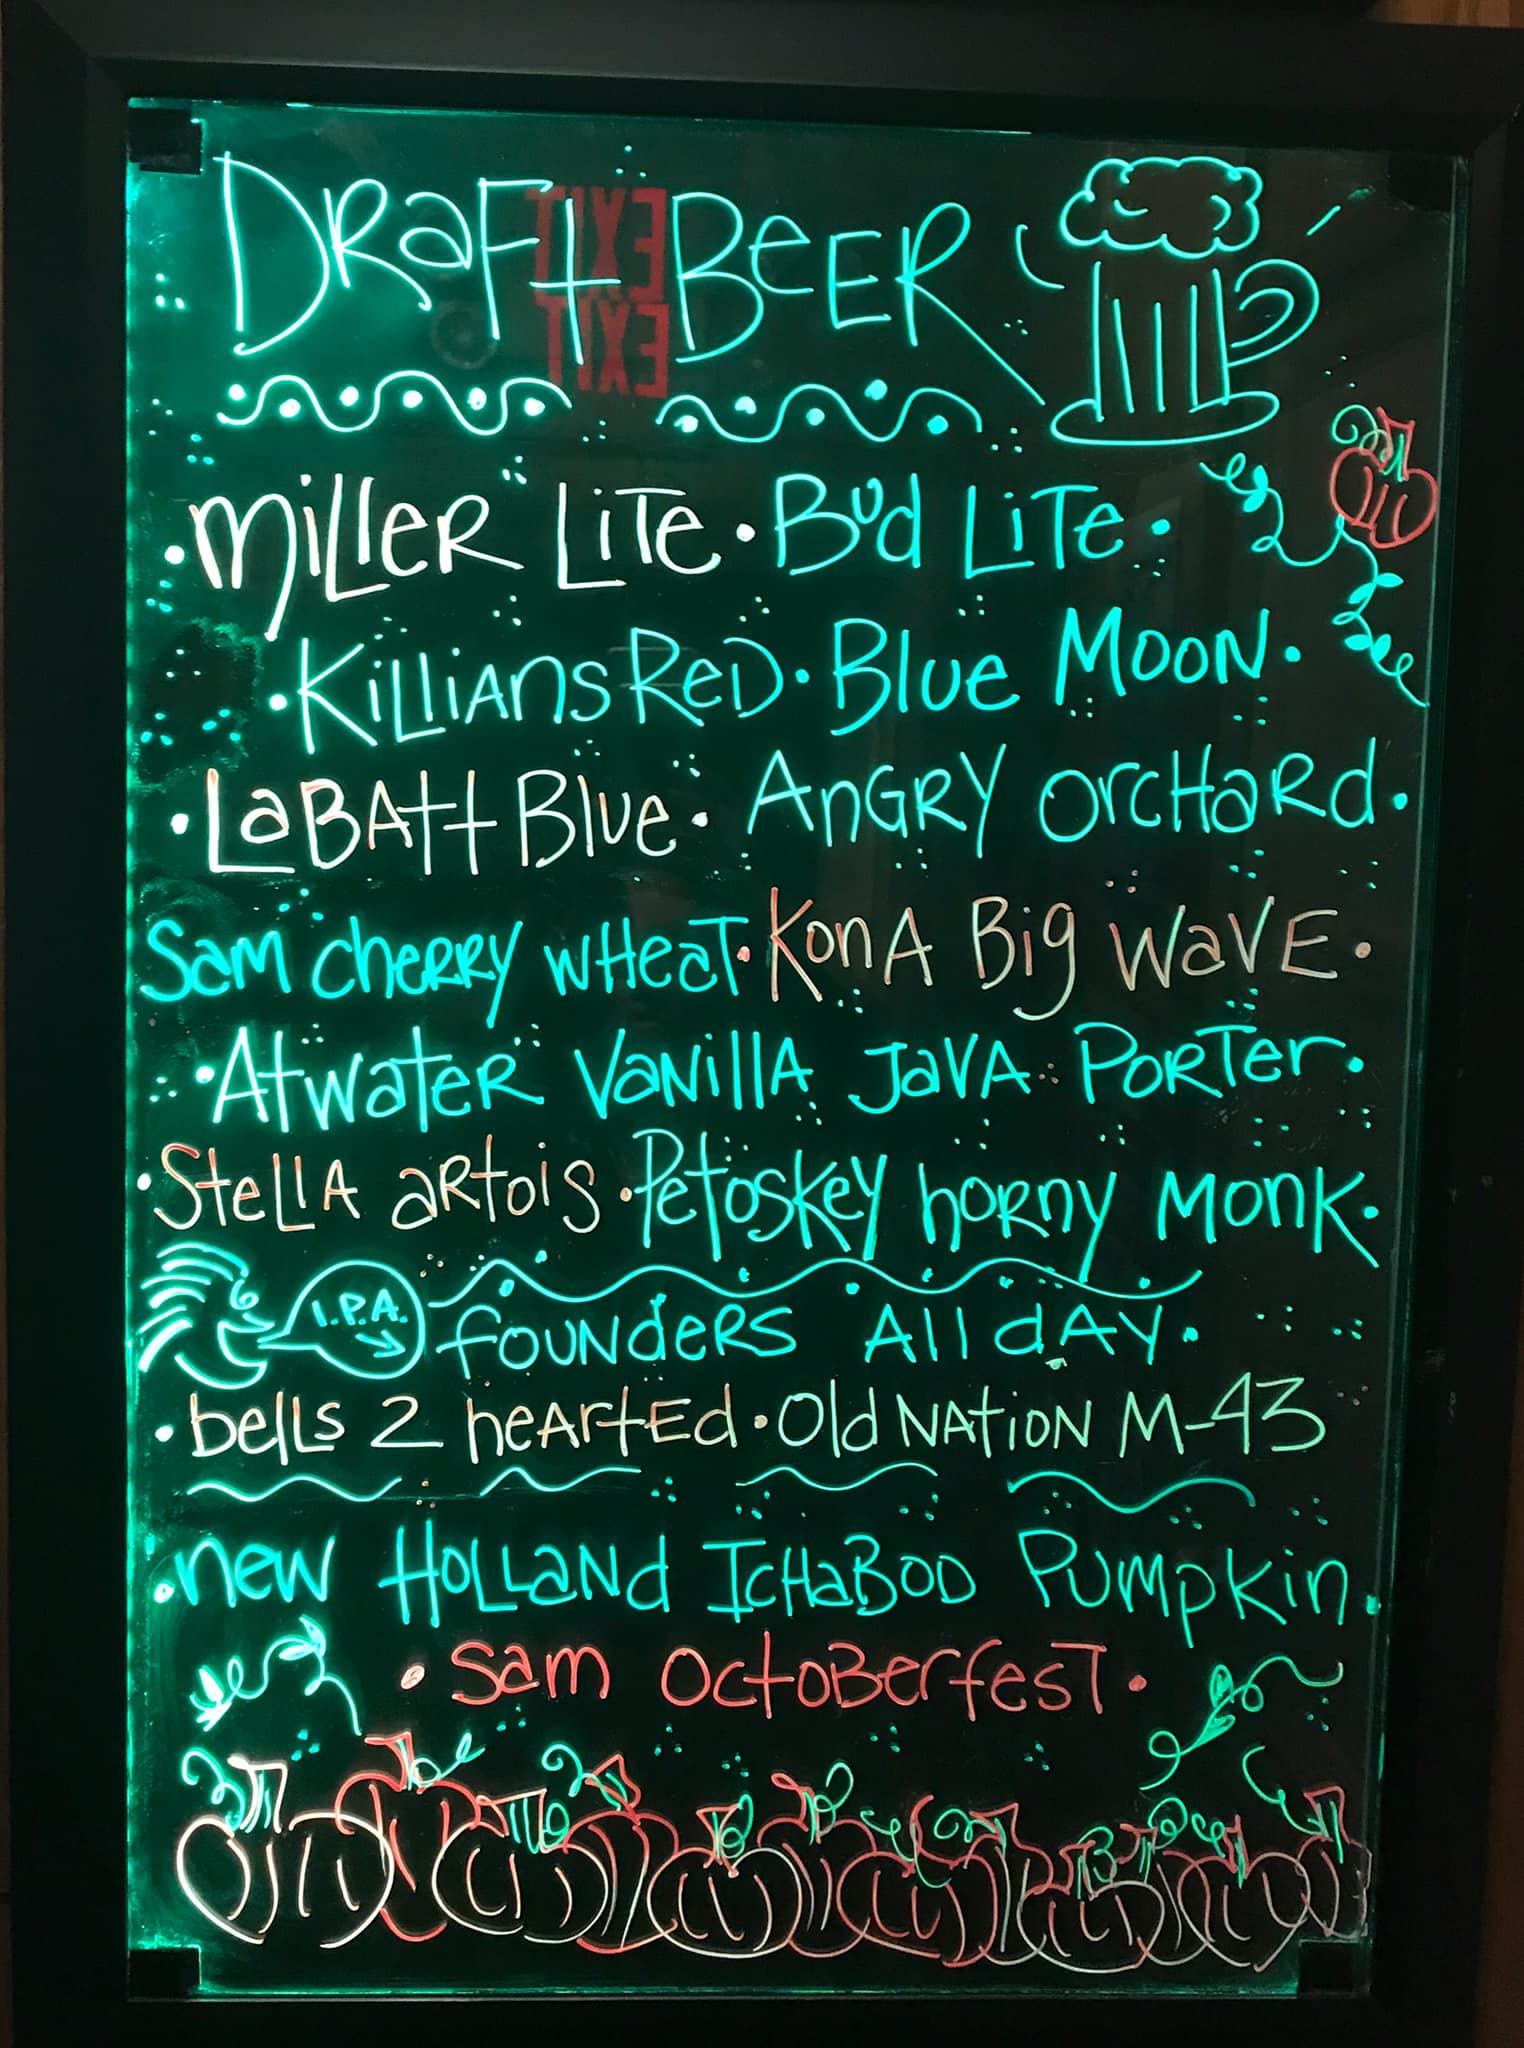 DRaft BeER
EXIT
EXIT
• MiLLER LiTe • Bud LiTe •
• KiLLiAns ReD • BLue MooN •
• LaBAtt BLue • AnGRY OrcHaRd •
Sam cheRRY wHeaT • KonA Big WaVE •
• AtwateR VaNillA JaVA PoRTer •
• SteLLA aRtois • PetoskeY hoRNy MonK •
I.P.A. founders All dAY •
• beLLs 2 heArtEd • Old NAtioN M-43
• new HoLLaNd IcHaBOD Pumpkin •
• Sam OctoBerfesT •